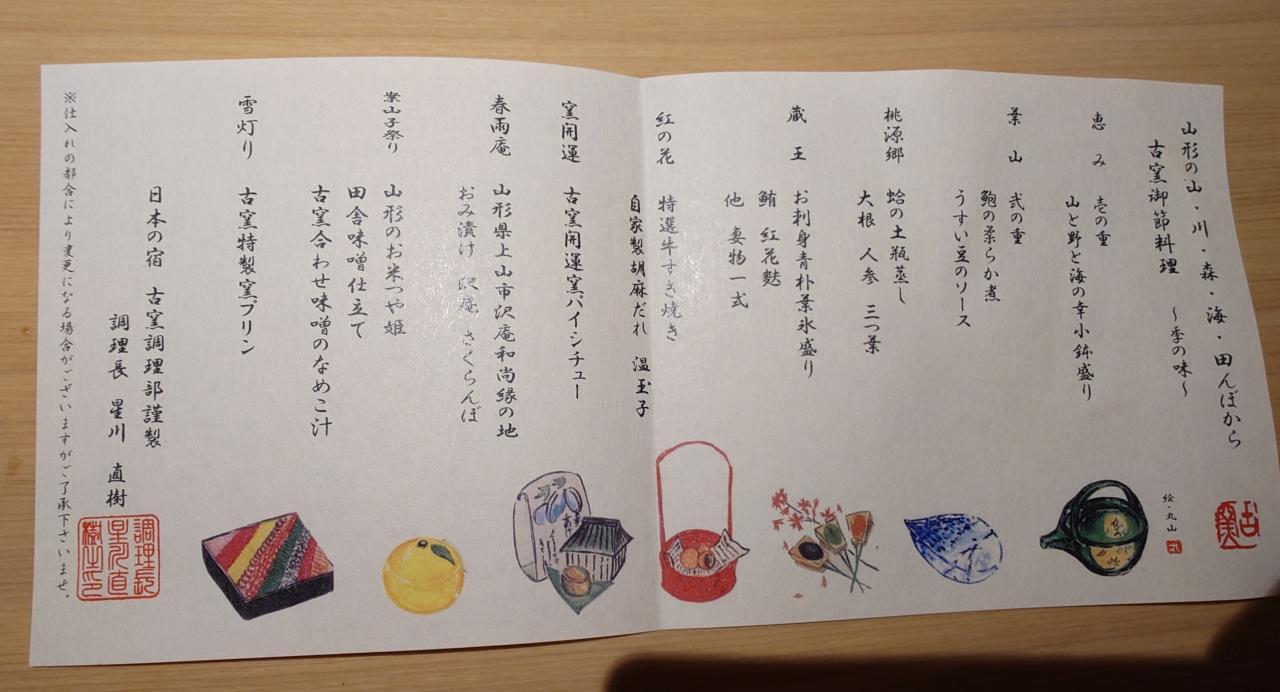 山形の山・川・森・海・田んぼから
古窯御節料理 ～季の味～
恵み 壱の重
山と野と海の幸小鉢盛り
葉山 弐の重
鮑の柔らか煮
うすい豆のソース
桃源郷 蛤の土瓶蒸し
大根 人参 三つ葉
蔵王 お刺身青朴葉氷盛り
鮪 紅花麩
他 妻物一式
紅の花 特選牛すき焼き
自家製胡麻だれ 温玉子
窯開運 古窯開運窯パイシチュー
春雨庵 山形県上山市沢庵和尚縁の地
おみ漬け 沢庵 さくらんぼ
案山子祭り 山形のお米つや姫
田舎味噌仕立て
古窯合わせ味噌のなめこ汁
雪灯り 古窯特製窯プリン
日本の宿 古窯調理部謹製
調理長 星川 直樹
※仕入れの都合により変更になる場合がございますがご了承下さいませ。
古窯
絵・丸山
調理長
星川直
樹之印